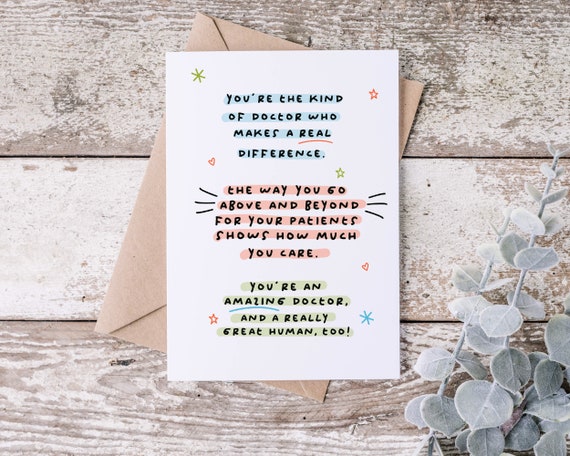 YOU'RE THE KIND
OF DOCTOR WHO
MAKES A REAL
DIFFERENCE.
THE WAY YOU GO
ABOVE AND BEYOND
FOR YOUR PATIENTS
SHOWS HOW MUCH
YOU CARE.
YOU'RE AN
AMAZING DOCTOR,
AND A REALLY
GREAT HUMAN, TOO!